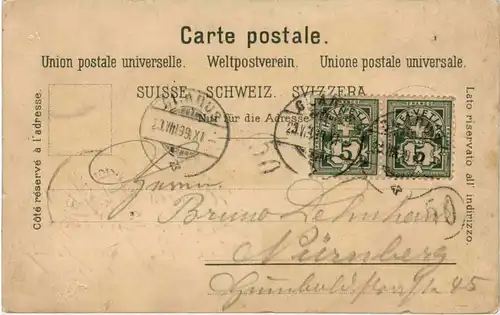 Carte postale.
Union postale universelle. Weltpostverein. Unione postale universale.
SUISSE. SCHWEIZ. SVIZZERA.
Nur für die Adresse
Côté réservé à l'adresse.
Lato riservato all' indirizzo.
FRANCO FRANCO
HELVETIA HELVETIA
5 5
Herrn
Bruno
Nürnberg
Humboldtstrasse 45